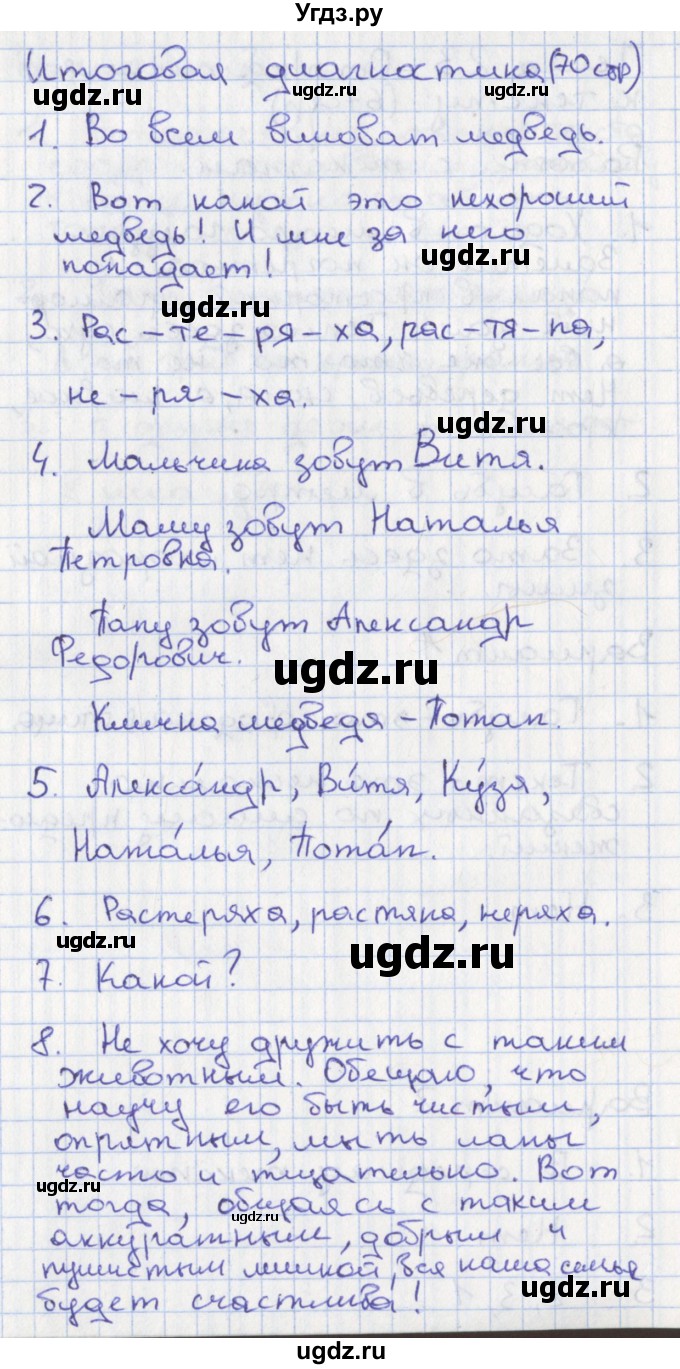 Угдз.ру
Итоговая диагностика (70 стр)
ugdz.ru
1. Во всем виноват медведь.
2. Вот какой это нехороший
медведь! И мне за него
ugdz.ru
попадает!
ugdz.ru
3. Рас-те-ря-ха, рас-тя-па,
не-ря-ха.
ugdz.ru
4. Мальчика зовут Витя.
Маму зовут Наталья
Петровна.
Папу зовут Александр
Федорович.
ugdz.ru
Кличка медведя - Потап.
5. Алекса́ндр, Ви́тя, Ку́зя,
Ната́лья, Пота́п.
6. Растеряха, растяпа, неряха.
ugdz.ru
ugdz.ru
7. Какой?
8. Не хочу дружить с таким
животным. Обещаю, что
научу его быть чистым,
опрятным, мыть лапы
часто и тщательно. Вот
ugdz.ru
тогда, общаясь с таким
ugdz.ru
аккуратным, добрым и
пушистым мишкой, вся наша семья
ugdz.ru
будет счастлива!
ugdz.ru